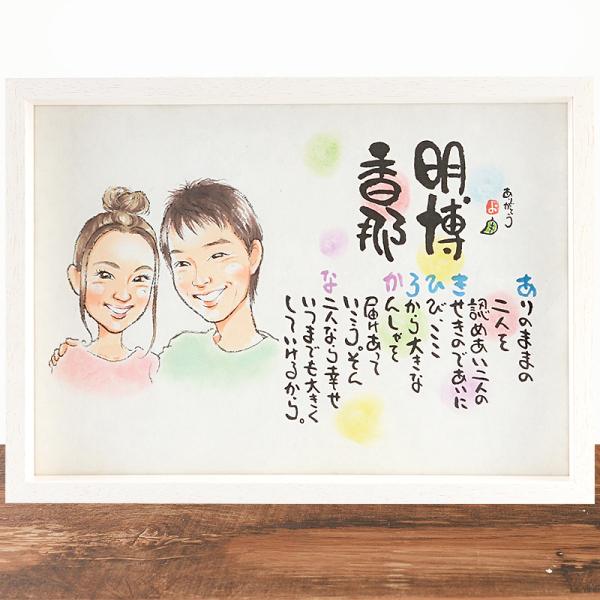 明博
香那
ありのままの
二人を
認めあい二人の
きせきのであいに
ひび、ここ
ろから大きな
かんしゃを
届けあって
いこう。そん
な二人なら幸せ
いつまでも大きく
していけるから。